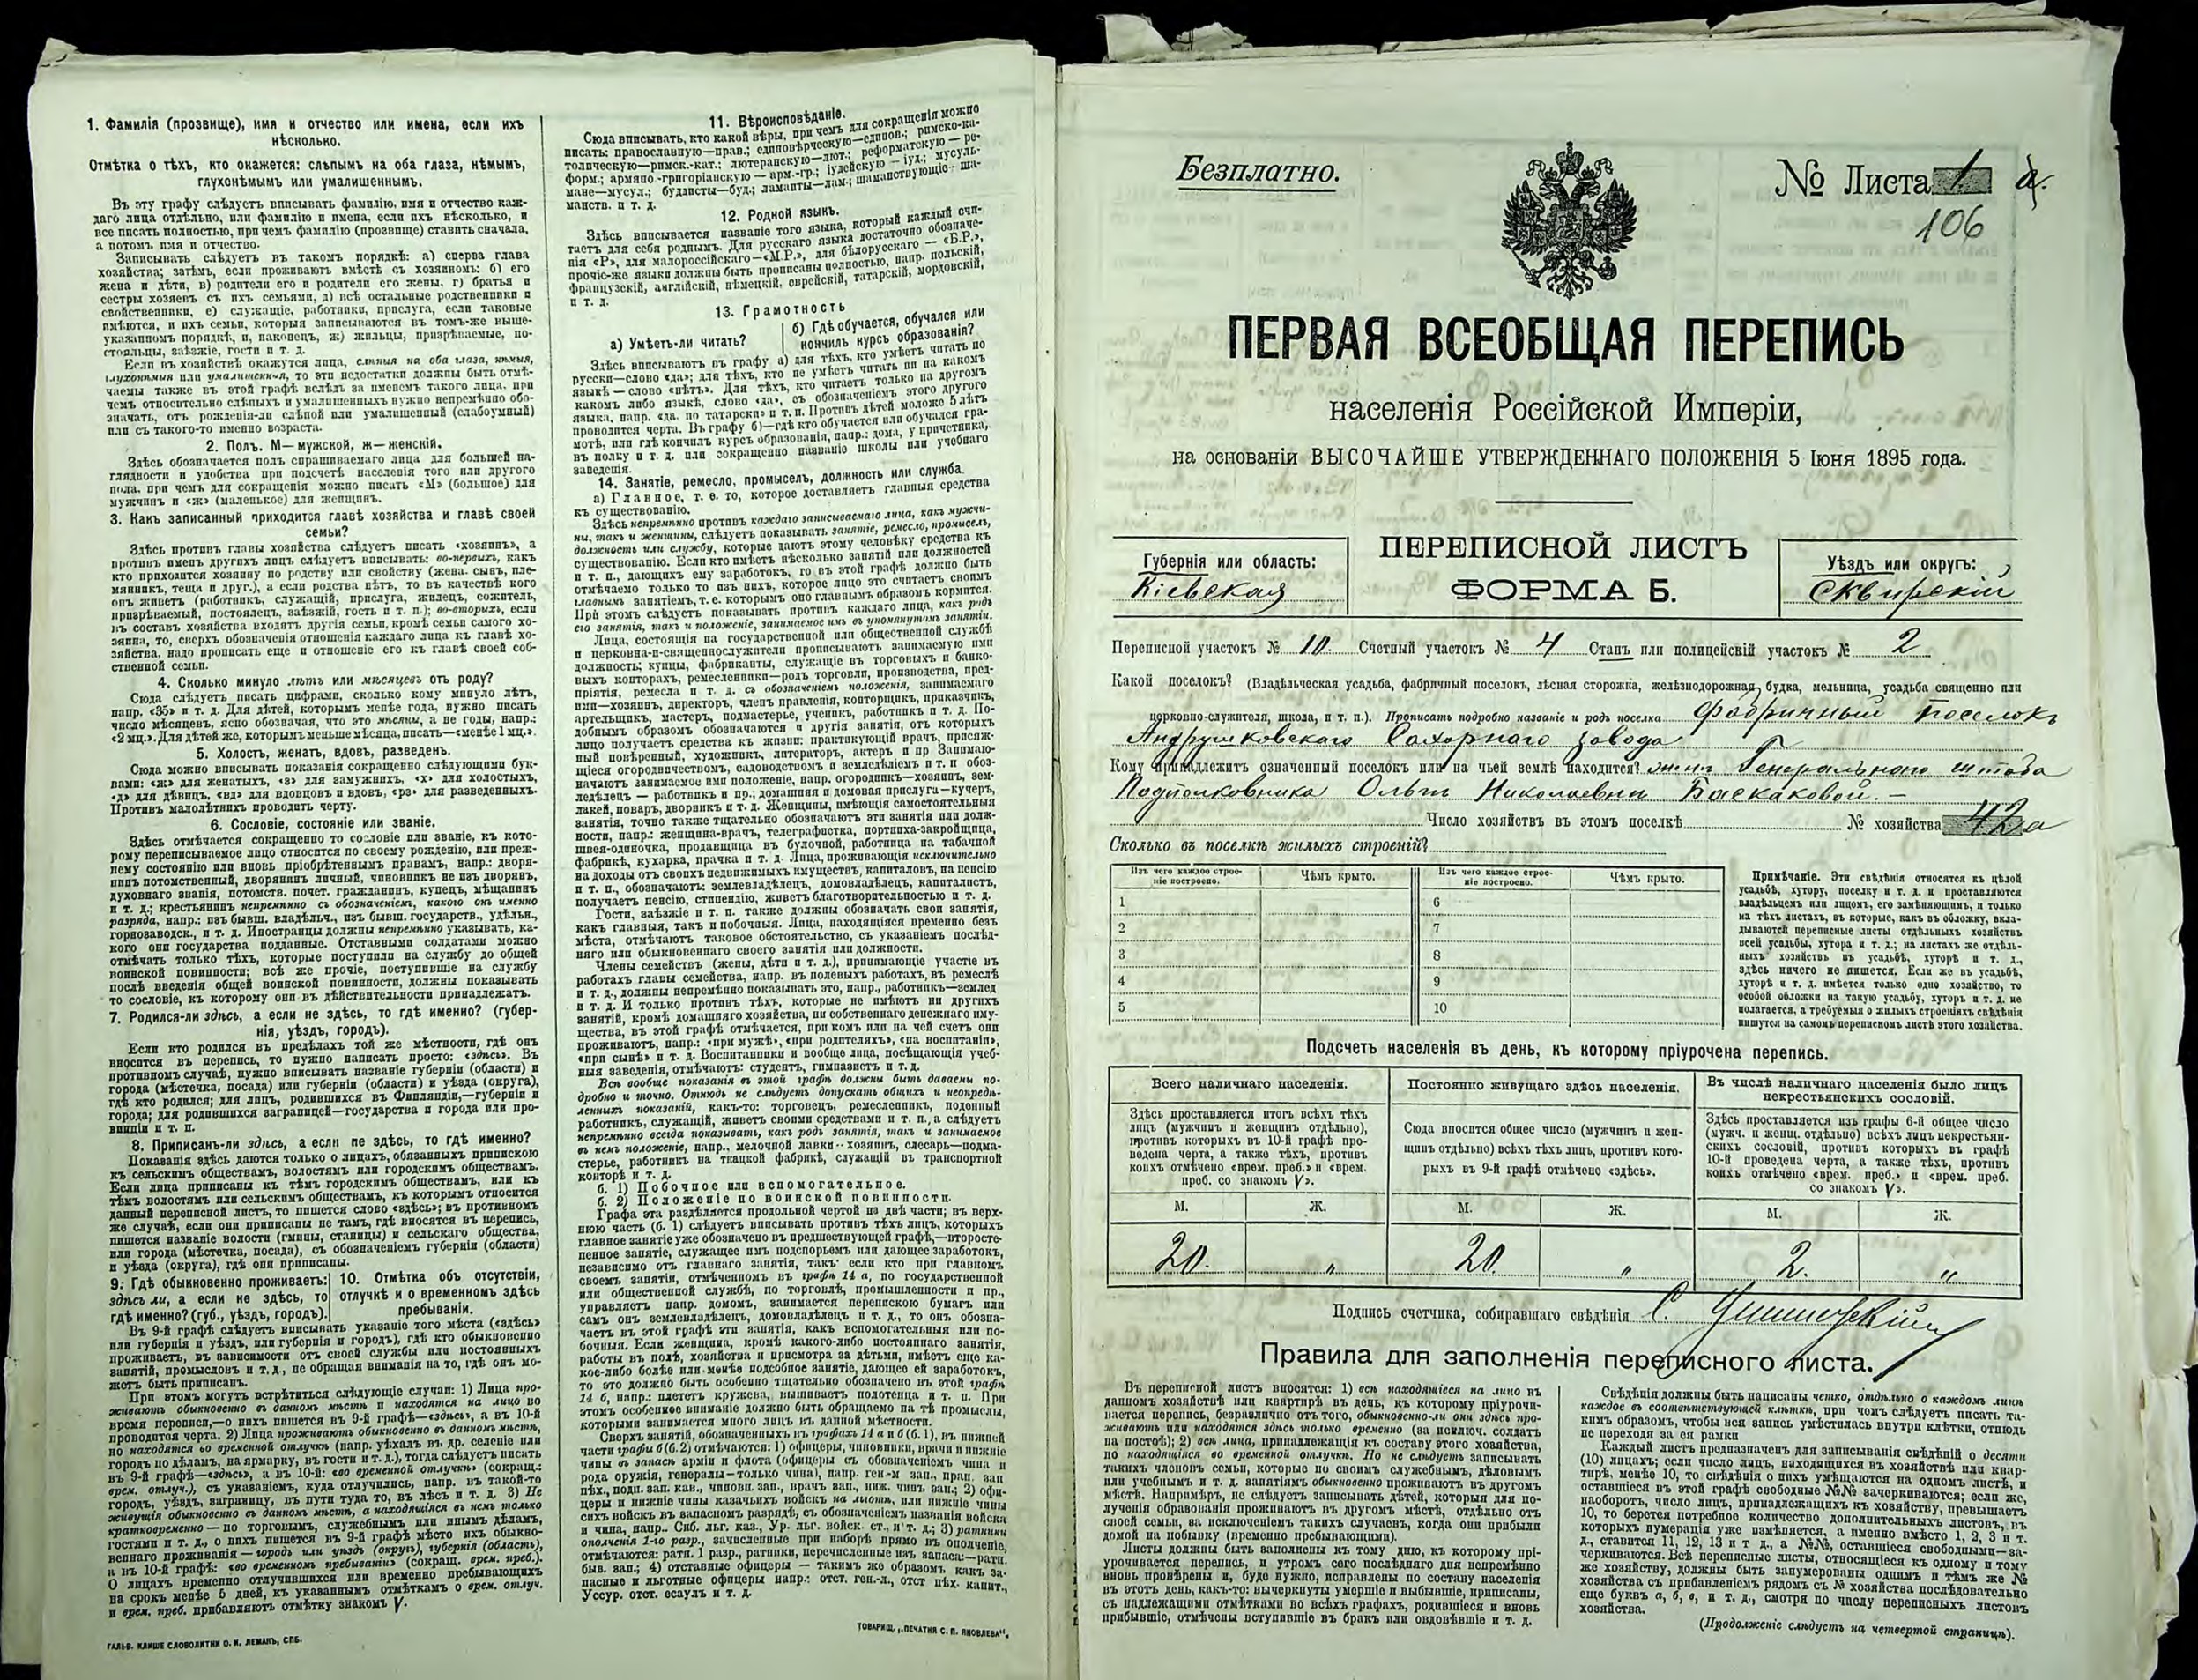 1. Фамилія (прозвище), имя и отчество или имена, если ихъ
нѣсколько.
Отмѣтка о тѣхъ, кто окажется: слѣпымъ на оба глаза, нѣмымъ,
глухонѣмымъ или умалишеннымъ.
Въ эту графу слѣдуетъ вписывать фамилію, имя и отчество каж-
даго лица отдѣльно, или фамилію и имена, если ихъ нѣсколько, и
все писать полностью, при чемъ фамилію (прозвище) ставить сначала,
а потомъ имя и отчество.
Записывать слѣдуетъ въ такомъ порядкѣ: а) сперва глава
хозяйства; затѣмъ, если проживаютъ вмѣстѣ съ хозяиномъ: б) его
жена и дѣти, в) родители его и родители его жены. г) братья и
сестры хозяевъ съ ихъ семьями, д) всѣ остальные родственники и
свойственники, е) служащіе, работники, прислуга, если таковые
имѣются, и ихъ семьи, которыя записываются въ томъ-же выше-
указанномъ порядкѣ, и, наконецъ, ж) жильцы, призрѣваемые, по-
стояльцы, заѣзжіе, гости и т. д.
Если въ хозяйствѣ окажутся лица, слѣпыя на оба глаза, нѣмыя,
глухонѣмыя или умалишенныя, то эти недостатки должны быть отмѣ-
чаемы также въ этой графѣ вслѣдъ за именемъ такого лица, при
чемъ относительно слѣпыхъ и умалишенныхъ нужно непремѣнно обо-
значать, отъ рожденія-ли слѣпой или умалишенный (слабоумный)
или съ такого-то именно возраста.
2. Полъ. М—мужской, ж—женскій.
Здѣсь обозначается полъ спрашиваемаго лица для большей на-
глядности и удобства при подсчетѣ населенія того или другого
пола, при чемъ для сокращенія можно писать «М» (большое) для
мужчинъ и «ж» (маленькое) для женщинъ.
3. Какъ записанный приходится главѣ хозяйства и главѣ своей
семьи?
Здѣсь противъ главы хозяйства слѣдуетъ писать «хозяинъ», а
противъ именъ другихъ лицъ слѣдуетъ вписывать: во-первыхъ, какъ
кто приходится хозяину по родству или свойству (жена, сынъ, пле-
мянникъ, теща и друг.), а если родства нѣтъ, то въ качествѣ кого
онъ живетъ (работникъ, служащій, прислуга, жилецъ, сожитель,
призрѣваемый, постоялецъ, заѣзжій, гость и т. п.); во-вторыхъ, если
въ составъ хозяйства входятъ другія семьи, кромѣ семьи самого хо-
зяина, то, сверхъ обозначенія отношенія каждаго лица къ главѣ хо-
зяйства, надо прописать еще и отношеніе его къ главѣ своей соб-
ственной семьи.
4. Сколько минуло лѣтъ или мѣсяцевъ отъ роду?
Сюда слѣдуетъ писать цифрами, сколько кому минуло лѣтъ,
напр. «35» и т. д. Для дѣтей, которымъ менѣе года, нужно писать
число мѣсяцевъ, ясно обозначая, что это мѣсяцы, а не годы, напр.:
«2 мц.». Для дѣтей же, которымъ меньше мѣсяца, писать—«менѣе 1 мц.».
5. Холостъ, женатъ, вдовъ, разведенъ.
Сюда можно вписывать показанія сокращенно слѣдующими бук-
вами: «ж» для женатыхъ, «з» для замужнихъ, «х» для холостыхъ,
«д» для дѣвицъ, «вд» для вдовцовъ и вдовъ, «рз» для разведенныхъ.
Противъ малолѣтнихъ проводить черту.
6. Сословіе, состояніе или званіе.
Здѣсь отмѣчается сокращенно то сословіе или званіе, къ кото-
рому переписываемое лицо относится по своему рожденію, или преж-
нему состоянію или вновь пріобрѣтеннымъ правамъ, напр.: дворя-
нинъ потомственный, дворянинъ личный, чиновникъ не изъ дворянъ,
духовнаго званія, потомств. почет. гражданинъ, купецъ, мѣщанинъ
и т. д.; крестьянинъ непремѣнно съ обозначеніемъ, какого онъ именно
разряда, напр.: изъ бывш. владѣльч., изъ бывш. государств., удѣльн.,
горнозаводск., и т. д. Иностранцы должны непремѣнно указывать, ка-
кого они государства подданные. Отставными солдатами можно
отмѣчать только тѣхъ, которые поступили на службу до общей
воинской повинности; всѣ же прочіе, поступившіе на службу
послѣ введенія общей воинской повинности, должны показывать
то сословіе, къ которому они въ дѣйствительности принадлежатъ.
7. Родился-ли здѣсь, а если не здѣсь, то гдѣ именно? (губер-
нія, уѣздъ, городъ).
Если кто родился въ предѣлахъ той же мѣстности, гдѣ онъ
вносится въ перепись, то нужно написать просто: «здѣсь». Въ
противномъ случаѣ, нужно вписывать названіе губерніи (области) и
города (мѣстечка, посада) или губерніи (области) и уѣзда (округа),
гдѣ кто родился; для лицъ, родившихся въ Финляндіи,—губерніи и
города; для родившихся заграницей—государства и города или про-
винціи и т. п.
8. Приписанъ-ли здѣсь, а если не здѣсь, то гдѣ именно?
Показанія здѣсь даются только о лицахъ, обязанныхъ припискою
къ сельскимъ обществамъ, волостямъ или городскимъ обществамъ.
Если лица приписаны къ тѣмъ городскимъ обществамъ, или къ
тѣмъ волостямъ или сельскимъ обществамъ, къ которымъ относится
данный переписной листъ, то пишется слово «здѣсь»; въ противномъ
же случаѣ, если они приписаны не тамъ, гдѣ вносятся въ перепись,
пишется названіе волости (гмины, станицы) и сельскаго общества,
или города (мѣстечка, посада), съ обозначеніемъ губерніи (области)
и уѣзда (округа), гдѣ они приписаны.
9. Гдѣ обыкновенно проживаетъ:
здѣсь ли, а если не здѣсь, то
гдѣ именно? (губ., уѣздъ, городъ).
10. Отмѣтка объ отсутствіи,
отлучкѣ и о временномъ здѣсь
пребываніи.
Въ 9-й графѣ слѣдуетъ вписывать указаніе того мѣста («здѣсь»
или губернія и уѣздъ, или губернія и городъ), гдѣ кто обыкновенно
проживаетъ, въ зависимости отъ своей службы или постоянныхъ
занятій, промысловъ и т. д., не обращая вниманія на то, гдѣ онъ мо-
жетъ быть приписанъ.
При этомъ могутъ встрѣтиться слѣдующіе случаи: 1) Лица про-
живаютъ обыкновенно въ данномъ мѣстѣ и находятся на лицо во
время переписи,—о нихъ пишется въ 9-й графѣ—«здѣсь», а въ 10-й
проводится черта. 2) Лица проживаютъ обыкновенно въ данномъ мѣстѣ,
но находятся во временной отлучкѣ (напр. уѣхалъ въ др. селеніе или
городъ по дѣламъ, на ярмарку, въ гости и т. д.), тогда слѣдуетъ писать
въ 9-й графѣ—«здѣсь», а въ 10-й: «во временной отлучкѣ» (сокращ.:
врем. отлуч.), съ указаніемъ, куда отлучились, напр. въ такой-то
городъ, уѣздъ, заграницу, въ пути туда то, въ лѣсъ и т. д. 3) Не
живущія обыкновенно въ данномъ мѣстѣ, а находящіяся въ немъ только
кратковременно — по торговымъ, служебнымъ или инымъ дѣламъ,
гостями и т. д., о нихъ пишется въ 9-й графѣ мѣсто ихъ обыкно-
веннаго проживанія — городъ или уѣздъ (округъ), губернія (область),
а въ 10-й графѣ: «во временномъ пребываніи» (сокращ. врем. преб.).
О лицахъ временно отлучившихся или временно пребывающихъ
на срокъ менѣе 5 дней, къ указаннымъ отмѣткамъ о врем. отлуч.
и врем. преб. прибавляютъ отмѣтку знакомъ V.
ГАЛЬВ. КЛИШЕ СЛОВОЛИТНИ О. И. ЛЕМАНЪ, СПБ.
11. Вѣроисповѣданіе.
Сюда вписывать, кто какой вѣры, при чемъ для сокращенія можно
писать: православную—прав.; единовѣрческую—единов.; римско-ка-
толическую—римск.-кат.; лютеранскую—лют.; реформатскую — ре-
форм.; армяно-григоріанскую — арм.-гр.; іудейскую — іуд.; мусуль-
мане—мусул.; буддисты—буд.; ламаиты—лам.; шаманствующіе — ша-
манств. и т. д.
12. Родной языкъ.
Здѣсь вписывается названіе того языка, который каждый счи-
таетъ для себя роднымъ. Для русскаго языка достаточно обозначе-
нія «Р», для малороссійскаго—«М.Р.», для бѣлорусскаго — «Б.Р.»,
прочіе-же языки должны быть прописаны полностью, напр. польскій,
французскій, англійскій, нѣмецкій, еврейскій, татарскій, мордовскій,
и т. д.
13. Грамотность
а) Умѣетъ-ли читать?
б) Гдѣ обучается, обучался или
кончилъ курсъ образованія?
Здѣсь вписываютъ въ графу а) для тѣхъ, кто умѣетъ читать по
русски—слово «да»; для тѣхъ, кто не умѣетъ читать ни на какомъ
языкѣ — слово «нѣтъ». Для тѣхъ, кто читаетъ только на другомъ
какомъ либо языкѣ, слово «да», съ обозначеніемъ этого другого
языка, напр. «да, по татарски» и т. п. Противъ дѣтей моложе 5 лѣтъ
проводится черта. Въ графу б)—гдѣ кто обучается или обучался гра-
мотѣ, или гдѣ кончилъ курсъ образованія, напр.: дома, у причетника,
въ полку и т. д. или сокращенно названіе школы или учебнаго
заведенія.
14. Занятіе, ремесло, промыселъ, должность или служба.
а) Главное, т. е. то, которое доставляетъ главныя средства
къ существованію.
Здѣсь непремѣнно противъ каждаго записываемаго лица, какъ мужчи-
ны, такъ и женщины, слѣдуетъ показывать занятіе, ремесло, промыселъ,
должность или службу, которые даютъ этому человѣку средства къ
существованію. Если кто имѣетъ нѣсколько занятій или должностей
и т. п., дающихъ ему заработокъ, то въ этой графѣ должно быть
отмѣчаемо только то изъ нихъ, которое лицо это считаетъ своимъ
главнымъ занятіемъ, т. е. которымъ оно главнымъ образомъ кормится.
При этомъ слѣдуетъ показывать противъ каждаго лица, какъ родъ
его занятія, такъ и положеніе, занимаемое имъ въ упомянутомъ занятіи.
Лица, состоящія на государственной или общественной службѣ
и церковно-и-священнослужители прописываютъ занимаемую ими
должность; купцы, фабриканты, служащіе въ торговыхъ и банко-
выхъ конторахъ, ремесленники—родъ торговли, производства, пред-
пріятія, ремесла и т. д. съ обозначеніемъ положенія, занимаемаго
ими—хозяинъ, директоръ, членъ правленія, конторщикъ, приказчикъ,
артельщикъ, мастеръ, подмастерье, ученикъ, работникъ и т. д. По-
добнымъ образомъ обозначаются и другія занятія, отъ которыхъ
лицо получаетъ средства къ жизни: практикующій врачъ, присяж-
ный повѣренный, художникъ, литераторъ, актеръ и пр Занимаю-
щіеся огородничествомъ, садоводствомъ и земледѣліемъ и т. п обоз-
начаютъ занимаемое ими положеніе, напр. огородникъ—хозяинъ, зем-
ледѣлецъ — работникъ и пр.; домашняя и домовая прислуга—кучеръ,
лакей, поваръ, дворникъ и т. д. Женщины, имѣющія самостоятельныя
занятія, точно также тщательно обозначаютъ эти занятія или долж-
ности, напр.: женщина-врачъ, телеграфистка, портниха-закройщица,
швея-одиночка, продавщица въ булочной, работница на табачной
фабрикѣ, кухарка, прачка и т. д. Лица, проживающія исключительно
на доходы отъ своихъ недвижимыхъ имуществъ, капиталовъ, на пенсію
и т. п., обозначаютъ: землевладѣлецъ, домовладѣлецъ, капиталистъ,
получаетъ пенсію, стипендію, живетъ благотворительностью и т. д.
Гости, заѣзжіе и т. п. также должны обозначать свои занятія,
какъ главныя, такъ и побочныя. Лица, находящіяся временно безъ
мѣста, отмѣчаютъ таковое обстоятельство, съ указаніемъ послѣд-
няго или обыкновеннаго своего занятія или должности.
Члены семействъ (жены, дѣти и т. д.), принимающіе участіе въ
работахъ главы семейства, напр. въ полевыхъ работахъ, въ ремеслѣ
и т. д., должны непремѣнно показывать это, напр., работникъ—землед
и т. д. И только противъ тѣхъ, которые не имѣютъ ни другихъ
занятій, кромѣ домашняго хозяйства, ни собственнаго денежнаго иму-
щества, въ этой графѣ отмѣчается, при комъ или на чей счетъ они
проживаютъ, напр.: «при мужѣ», «при родителяхъ», «на воспитаніи»,
«при сынѣ» и т. д. Воспитанники и вообще лица, посѣщающія учеб-
ныя заведенія, отмѣчаютъ: студентъ, гимназистъ и т. д.
Всѣ вообще показанія въ этой графѣ должны быть даваемы по-
дробно и точно. Отнюдь не слѣдуетъ допускать общихъ и неопредѣ-
ленныхъ показаній, какъ-то: торговецъ, ремесленникъ, поденный
работникъ, служащій, живетъ своими средствами и т. п., а слѣдуетъ
непремѣнно всегда показывать, какъ родъ занятія, такъ и занимаемое
въ немъ положеніе, напр., мелочной лавки - хозяинъ, слесарь—подма-
стерье, работникъ на ткацкой фабрикѣ, служащій въ транспортной
конторѣ и т. д.
б. 1) Побочное или вспомогательное.
б. 2) Положеніе по воинской повинности.
Графа эта раздѣляется продольной чертой на двѣ части; въ верх-
нюю часть (б. 1) слѣдуетъ вписывать противъ тѣхъ лицъ, которыхъ
главное занятіе уже обозначено въ предшествующей графѣ,—второсте-
пенное занятіе, служащее имъ подспорьемъ или дающее заработокъ,
независимо отъ главнаго занятія, такъ: если кто при главномъ
своемъ занятіи, отмѣченномъ въ графѣ 14 а, по государственной
или общественной службѣ, по торговлѣ, промышленности и пр.,
управляетъ напр. домомъ, занимается перепискою бумагъ или
самъ онъ землевладѣлецъ, домовладѣлецъ и т. д., то онъ обозна-
чаетъ въ этой графѣ эти занятія, какъ вспомогательныя или по-
бочныя. Если женщина, кромѣ какого-либо постояннаго занятія,
работы въ полѣ, хозяйства и присмотра за дѣтьми, имѣетъ еще ка-
кое-либо болѣе или менѣе подсобное занятіе, дающее ей заработокъ,
то это должно быть особенно тщательно обозначено въ этой графѣ
14 б, напр.: плететъ кружева, вышиваетъ полотенца и т. п. При
этомъ особенное вниманіе должно быть обращаемо на тѣ промыслы,
которыми занимается много лицъ въ данной мѣстности.
Сверхъ занятій, обозначенныхъ въ графахъ 14 а и б (б. 1), въ нижней
части графы б (б. 2) отмѣчаются: 1) офицеры, чиновники, врачи и нижніе
чины въ запасѣ арміи и флота (офицеры съ обозначеніемъ чина и
рода оружія, генералы—только чина), напр. ген.-м зап., прап. зап
пѣх., подп. зап. кав., чиновн. зап., врачъ зап., ниж. чинъ зап.; 2) офи-
церы и нижніе чины казачьихъ войскъ на льготѣ, или нижніе чины
сихъ войскъ въ запасномъ разрядѣ, съ обозначеніемъ названія войска
и чина, напр.. Сиб. льг. каз., Ур. льг. войск. ст., и т. д.; 3) ратники
ополченія 1-го разр., зачисленные при наборѣ прямо въ ополченіе,
отмѣчаются: ратн. 1 разр., ратники, перечисленные изъ запаса:—ратн.
быв. зап.; 4) отставные офицеры — такимъ же образомъ, какъ за-
пасные и льготные офицеры напр.: отст. ген.-л., отст пѣх. капит.,
Уссур. отст. есаулъ и т. д.
ТОВАРИЩ. „ПЕЧАТНЯ С. П. ЯКОВЛЕВА“.
Безплатно.
№ Листа 1 а.
106
ПЕРВАЯ ВСЕОБЩАЯ ПЕРЕПИСЬ
населенія Россійской Имперіи,
на основаніи ВЫСОЧАЙШЕ УТВЕРЖДЕННАГО ПОЛОЖЕНІЯ 5 Іюня 1895 года.
Губернія или область:
Кіевская
ПЕРЕПИСНОЙ ЛИСТЪ
ФОРМА Б.
Уѣздъ или округъ:
Сквирскій
Переписной участокъ № 10. Счетный участокъ № 4 Станъ или полицейскій участокъ № 2
Какой поселокъ? (Владѣльческая усадьба, фабричный поселокъ, лѣсная сторожка, желѣзнодорожная будка, мельница, усадьба священно или
церковно-служителя, школа, и т. п.). Прописать подробно названіе и родъ поселка Фабричный поселокъ
Андрушковскаго Сахарнаго завода
Кому принадлежитъ означенный поселокъ или на чьей землѣ находится? жены Генеральнаго штаба
Подполковника Ольги Николаевны Баскаковой. —
Число хозяйствъ въ этомъ поселкѣ № хозяйства 42 а
Сколько въ поселкѣ жилыхъ строеній?
Изъ чего каждое строе-
ніе построено.
Чѣмъ крыто.
Изъ чего каждое строе-
ніе построено.
Чѣмъ крыто.
1 6
2 7
3 8
4 9
5 10
Примѣчаніе. Эти свѣдѣнія относятся къ цѣлой
усадьбѣ, хутору, поселку и т. д. и проставляются
владѣльцемъ или лицомъ, его замѣняющимъ, и только
на тѣхъ листахъ, въ которые, какъ въ обложку, вкла-
дываются переписные листы отдѣльныхъ хозяйствъ
всей усадьбы, хутора и т. д.; на листахъ же отдѣль-
ныхъ хозяйствъ въ усадьбѣ, хуторѣ и т. д.,
здѣсь ничего не пишется. Если же въ усадьбѣ,
хуторѣ и т. д. имѣется только одно хозяйство, то
особой обложки на такую усадьбу, хуторъ и т. д. не
полагается, а требуемыя о жилыхъ строеніяхъ свѣдѣнія
пишутся на самомъ переписномъ листѣ этого хозяйства.
Подсчетъ населенія въ день, къ которому пріурочена перепись.
Всего наличнаго населенія.
Здѣсь проставляется итогъ всѣхъ тѣхъ
лицъ (мужчинъ и женщинъ отдѣльно),
противъ которыхъ въ 10-й графѣ про-
ведена черта, а также тѣхъ, противъ
коихъ отмѣчено «врем. преб.» и «врем.
преб. со знакомъ V».
Постоянно живущаго здѣсь населенія.
Сюда вносится общее число (мужчинъ и жен-
щинъ отдѣльно) всѣхъ тѣхъ лицъ, противъ кото-
рыхъ въ 9-й графѣ отмѣчено «здѣсь».
Въ числѣ наличнаго населенія было лицъ
некрестьянскихъ сословій.
Здѣсь проставляется изъ графы 6-й общее число
(мужч. и женщ. отдѣльно) всѣхъ лицъ некрестьян-
скихъ сословій, противъ которыхъ въ графѣ
10-й проведена черта, а также тѣхъ, противъ
коихъ отмѣчено «врем. преб.» и «врем. преб.
со знакомъ V».
М. Ж. М. Ж. М. Ж.
20. „ 20. „ 2. „
Подпись счетчика, собиравшаго свѣдѣнія С.
Правила для заполненія переписного листа.
Въ переписной листъ вносятся: 1) всѣ находящіеся на лицо въ
данномъ хозяйствѣ или квартирѣ въ день, къ которому пріурочи-
вается перепись, безразлично отъ того, обыкновенно-ли они здѣсь про-
живаютъ или находятся здѣсь только временно (за исключ. солдатъ
на постоѣ); 2) всѣ лица, принадлежащія къ составу этого хозяйства,
но находящіяся во временной отлучкѣ. Но не слѣдуетъ записывать
такихъ членовъ семьи, которые по своимъ служебнымъ, дѣловымъ
или учебнымъ и т. д. занятіямъ обыкновенно проживаютъ въ другомъ
мѣстѣ. Напримѣръ, не слѣдуетъ записывать дѣтей, которыя для по-
лученія образованія проживаютъ въ другомъ мѣстѣ, отдѣльно отъ
своей семьи, за исключеніемъ такихъ случаевъ, когда они прибыли
домой на побывку (временно пребывающими).
Листы должны быть заполнены къ тому дню, къ которому прі-
урочивается перепись, и утромъ сего послѣдняго дня непремѣнно
вновь провѣрены и, буде нужно, исправлены по составу населенія
въ этотъ день, какъ-то: вычеркнуты умершіе и выбывшіе, приписаны,
съ надлежащими отмѣтками во всѣхъ графахъ, родившіеся и вновь
прибывшіе, отмѣчены вступившіе въ бракъ или овдовѣвшіе и т. д.
Свѣдѣнія должны быть написаны четко, отдѣльно о каждомъ лицѣ
каждое въ соотвѣтствующей клѣткѣ, при чемъ слѣдуетъ писать та-
кимъ образомъ, чтобы вся запись умѣстилась внутри клѣтки, отнюдь
не переходя за ея рамки
Каждый листъ предназначенъ для записыванія свѣдѣній о десяти
(10) лицахъ; если число лицъ, находящихся въ хозяйствѣ или квар-
тирѣ, менѣе 10, то свѣдѣнія о нихъ умѣщаются на одномъ листѣ, и
оставшіеся въ этой графѣ свободные №№ зачеркиваются; если же,
наоборотъ, число лицъ, принадлежащихъ къ хозяйству, превышаетъ
10, то берется потребное количество дополнительныхъ листовъ, въ
которыхъ нумерація уже измѣняется, а именно вмѣсто 1, 2, 3 и т.
д., ставится 11, 12, 13 и т д., а №№, оставшіеся свободными—за-
черкиваются. Всѣ переписные листы, относящіеся къ одному и тому
же хозяйству, должны быть занумерованы однимъ и тѣмъ же №
хозяйства съ прибавленіемъ рядомъ съ № хозяйства послѣдовательно
еще буквъ а, б, в, и т. д., смотря по числу переписныхъ листовъ
хозяйства.
(Продолженіе слѣдуетъ на четвертой страницѣ).